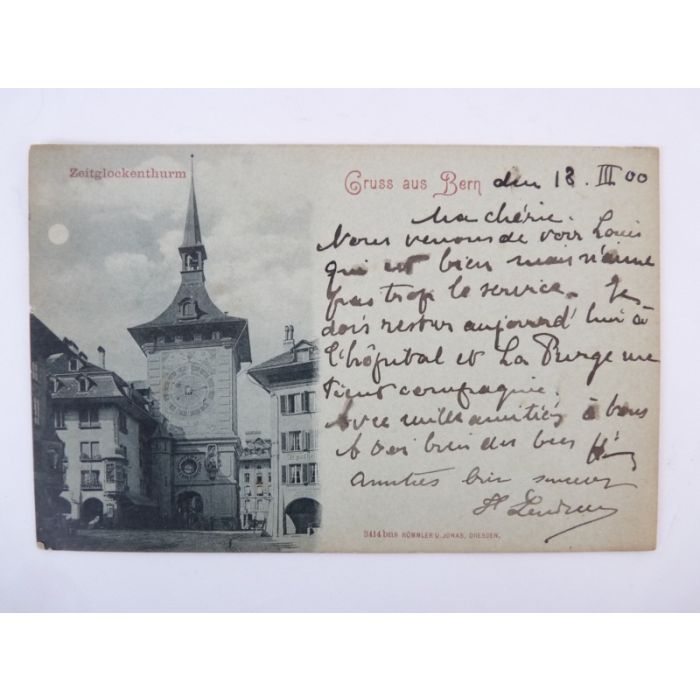 Zeitglockenthurm
Gruss aus Bern den 18. III 00
Ma chérie.
Nous venons de voir Louis
qui est bien mais n'aime
pas trop le service. Je
dois rester aujourd'hui à
l'hôpital et La Purge me
tient compagnie.
Avec mille amitiés à tous
A toi bien des
Amitiés bien
3414 bus RÖMMLER U. JONAS, DRESDEN.